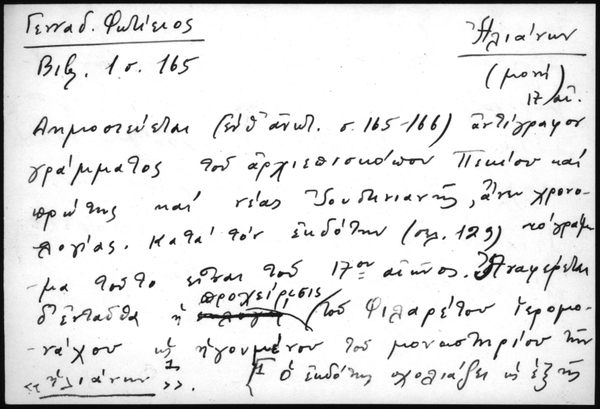 Γενναδ. Φωτίειος
Ἠλιάνων
Βιβ. 1 σ. 165
(μονή)
17 αἰ.
Δημοσιεύεται (ἐνθ' ἀνωτ. σ. 165-166) ἀντίγραφον
γράμματος τοῦ ἀρχιεπισκόπου Πεκίου καί
πρώτης καί νέας Ἰουστινιανῆς, ἄνευ χρονο-
λογίας. Κατά τόν ἐκδότην (σελ. 129) τό γράμ-
-μα τοῦτο εἶναι τοῦ 17ου αἰῶνος. Ἀναφέρεται
δ' ἐνταῦθα ἡ προχείρισις τοῦ Φιλαρέτου ἱερομο-
-νάχου ὡς ἡγουμένου τοῦ μοναστηρίου τῶν
«Ἠλιάνων»1.
1 Ὁ ἐκδότης σχολιάζει ὡς ἑξῆς